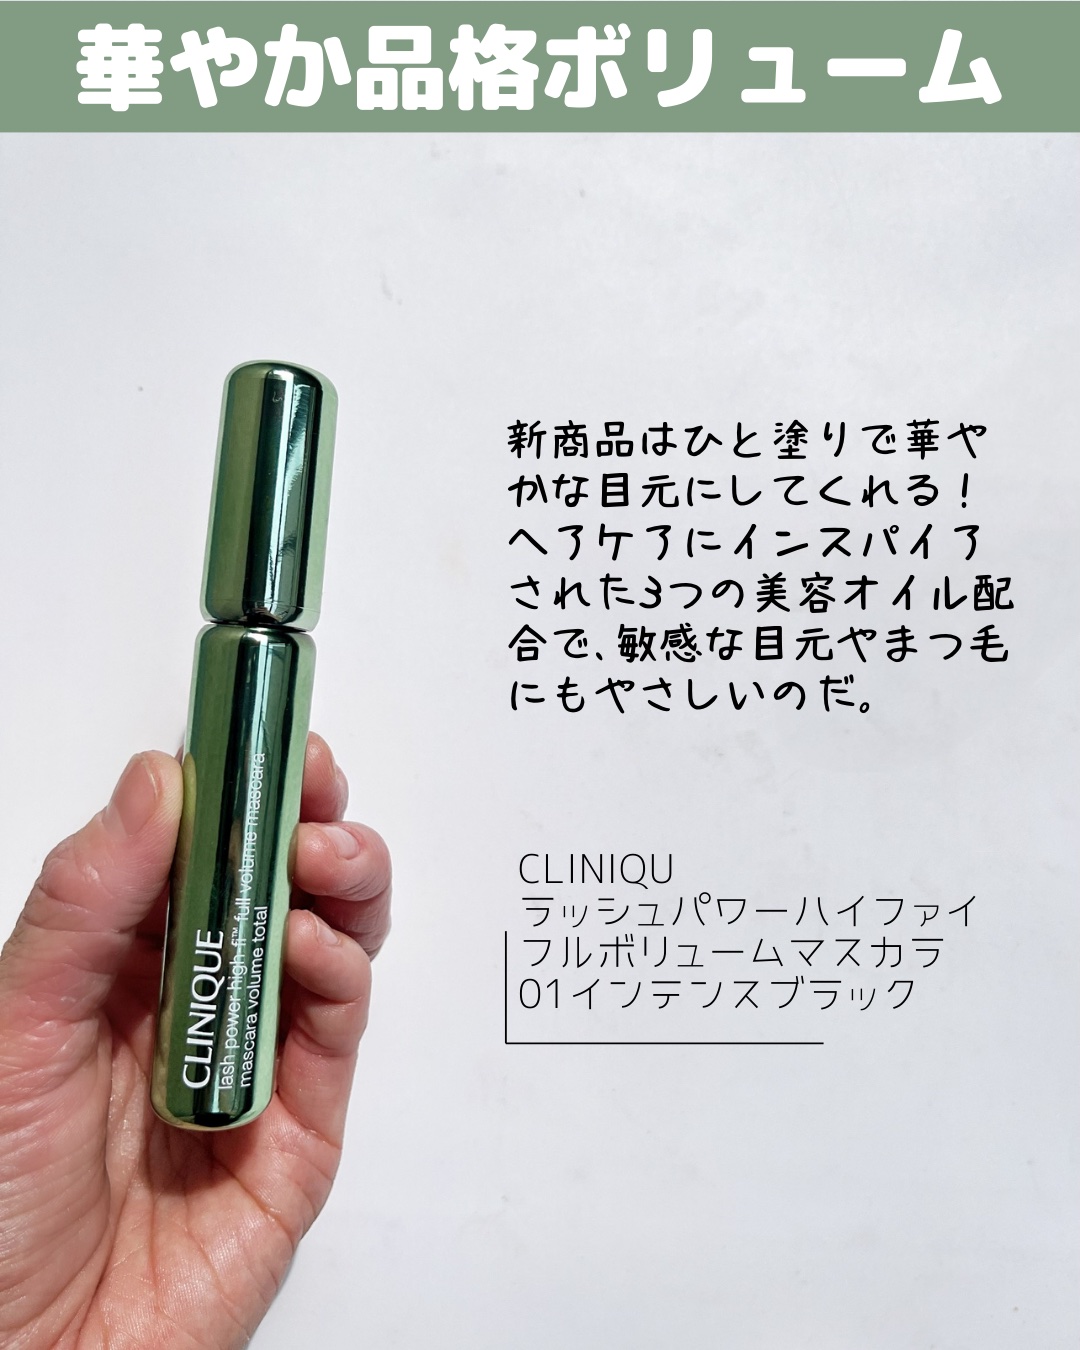 華やか品格ボリューム
新商品はひと塗りで華や
かな目元にしてくれる！
ヘアケアにインスパイア
された3つの美容オイル配
合で、敏感な目元やまつ毛
にもやさしいのだ。
CLINIQU
ラッシュパワーハイファイ
フルボリュームマスカラ
01インテンスブラック
CLINIQUE
lash power high-fi™ full volume mascara
mascara volume total